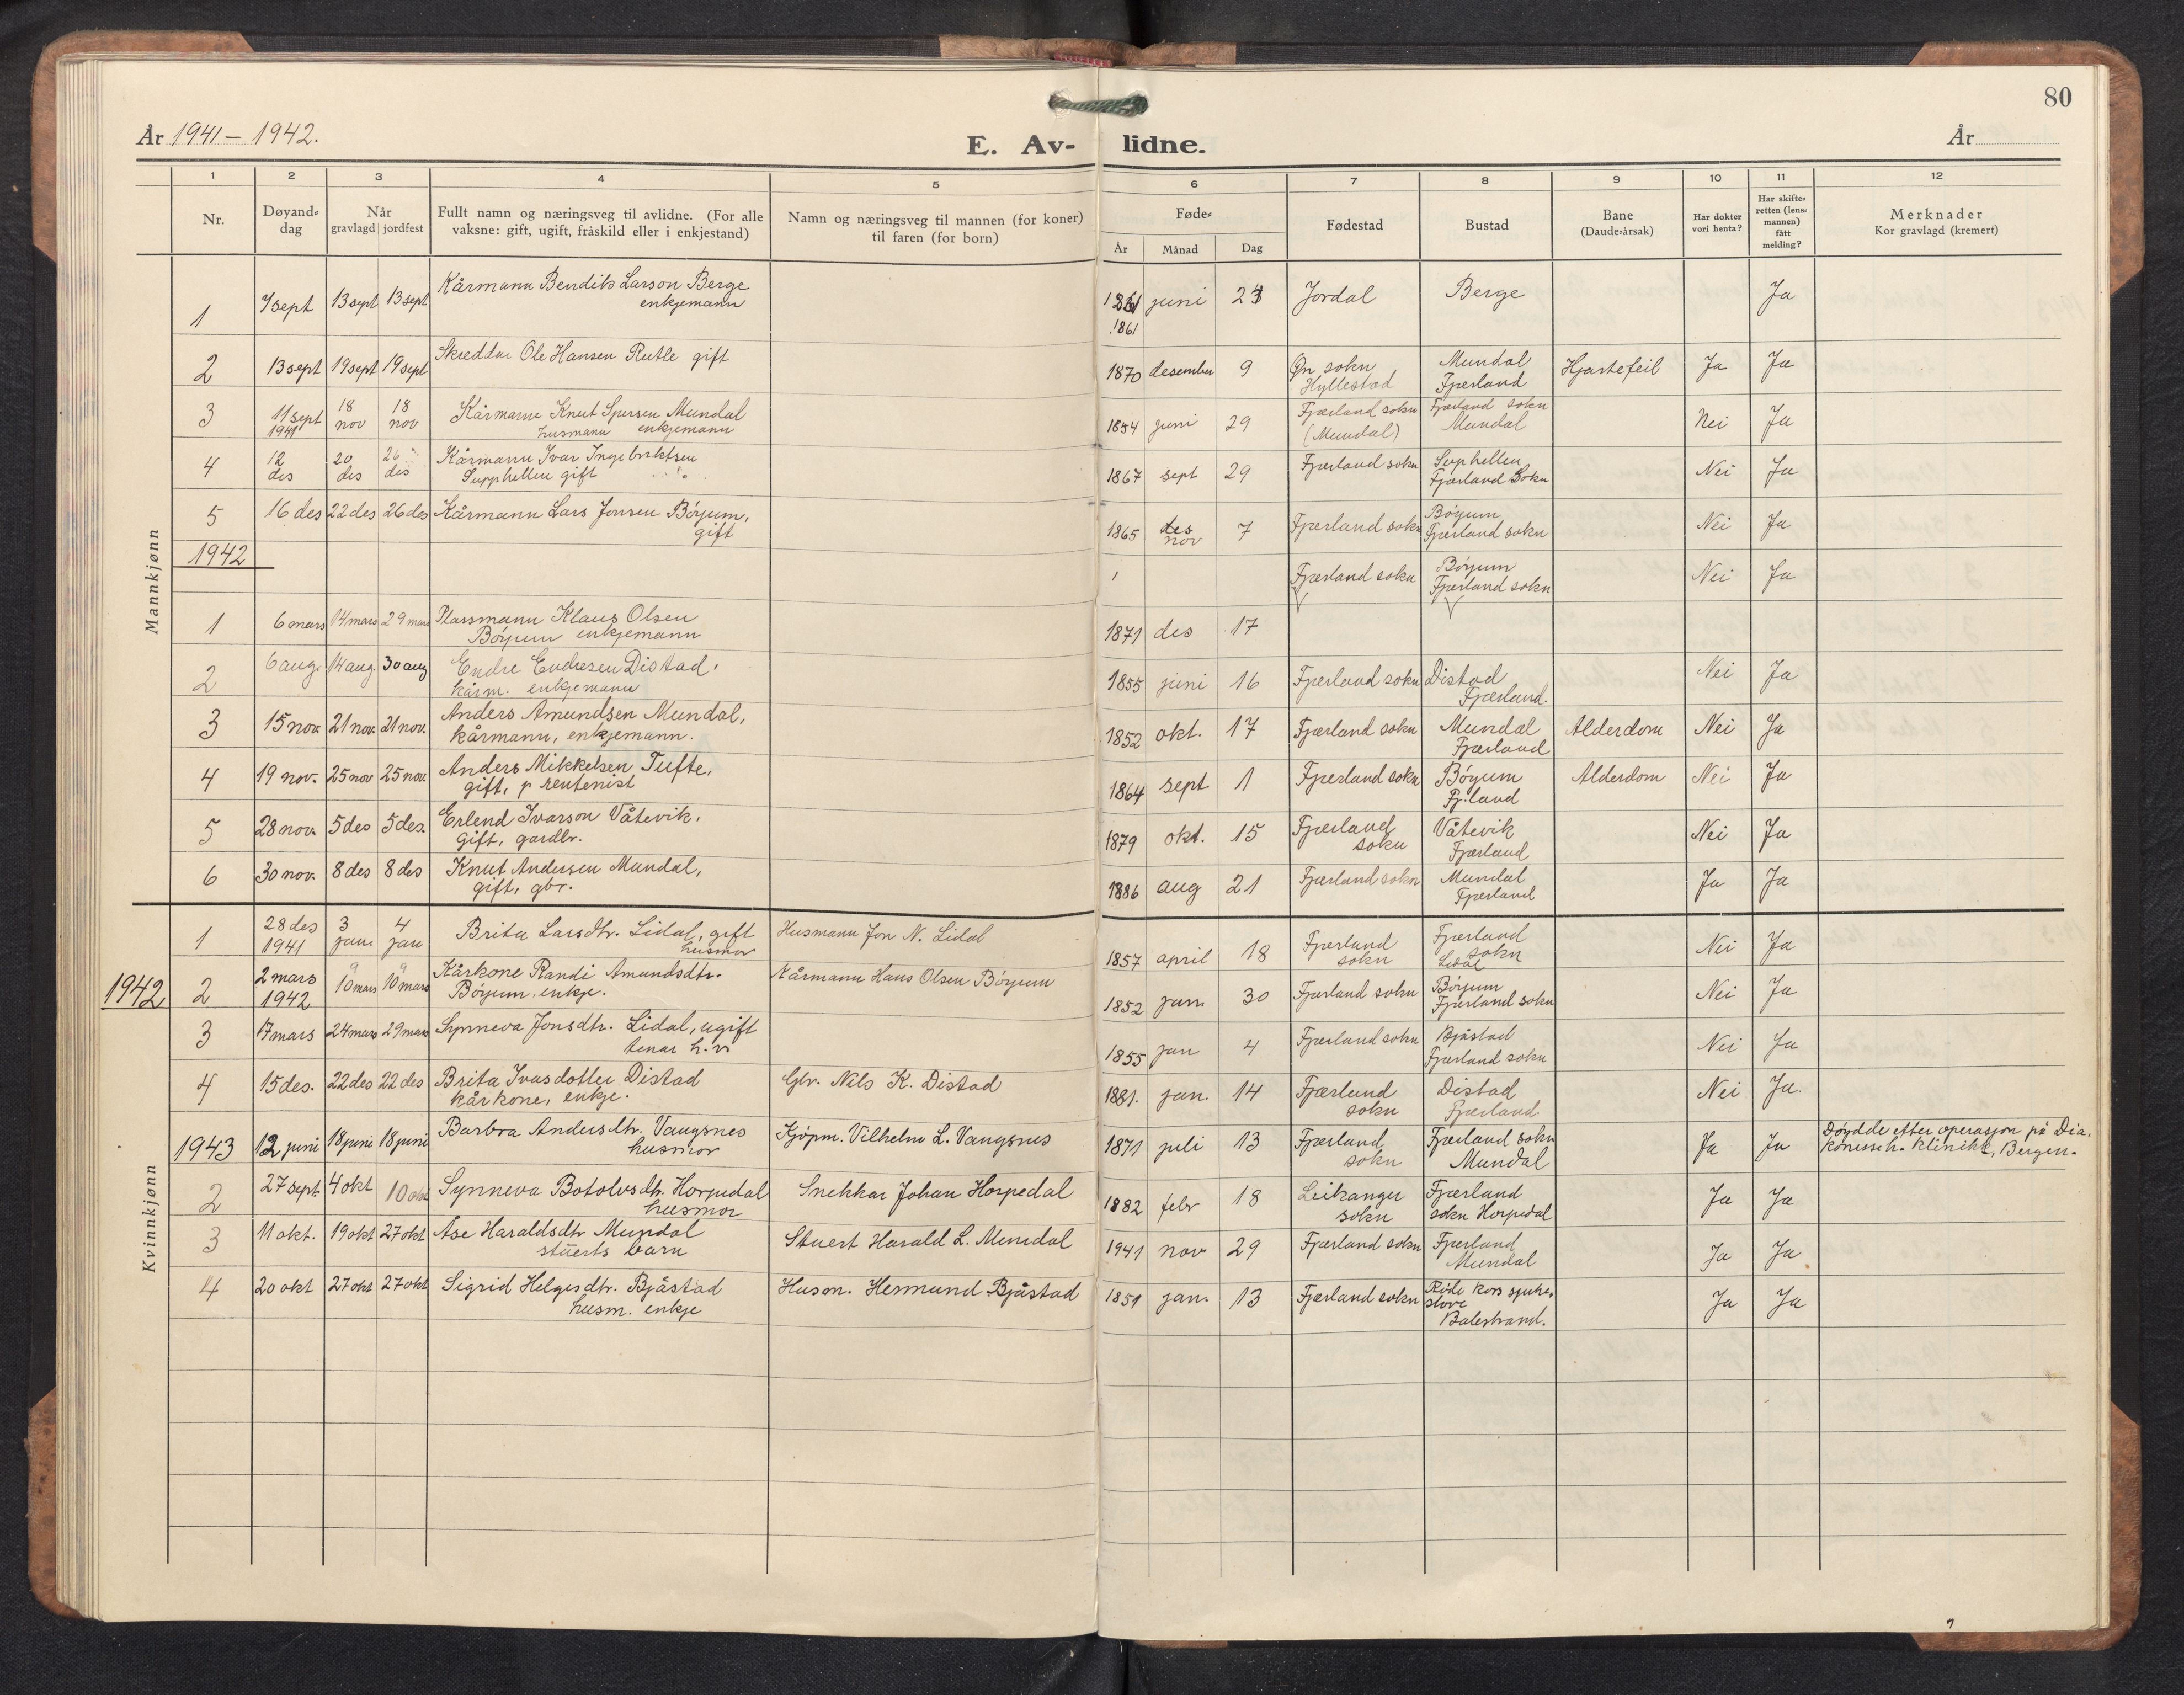 80
År 1941 – 1942.
E. Av- lidne.
År
1 2 3 4 5 6 7 8 9 10 11 12
Nr.
Døyand-
dag
Når
gravlagd jordfest
Fullt namn og næringsveg til avlidne. (For alle
vaksne: gift, ugift, fråskild eller i enkjestand)
Namn og næringsveg til mannen (for koner)
til faren (for born)
Føde-
År Månad Dag
Fødestad
Bustad
Bane
(Daude-årsak)
Har dokter
vori henta?
Har skifte-
retten (lens-
mannen)
fått
melding?
Merknader
Kor gravlagd (kremert)
Mannkjønn
1 7 sept 13 sept 13 sept Kårmann Bendik Larson Berge juni 23 Jordal Berge Ja
enkjemann
1861
2 13 sept 19 sept 19 sept Skreddar Ole Hansen Rutle gift 1870 desember 9 Øn sokn Mundal Hjartefeil Ja Ja
Hyllestad Fjærland
3 11 sept 18 18 Kårmann Knut Sjursen Mundal 1854 juni 29 Fjærland sokn Fjærland sokn Nei Ja
1941 nov nov husmann enkjemann (Mundal) Mundal
4 12 20 26 Kårmann Ivar Ingebriktsen 1867 sept 29 Fjærland sokn Suphellen Nei Ja
des des des Supphellen gift Fjærland Sokn
5 16 des 22 des 26 des Kårmann Lars Jonsen Bøyum, 1865 des 7 Fjærland sokn Bøyum Nei Ja
gift nov Fjærland sokn
1942
Fjærland sokn Bøyum Nei Ja
Fjærland sokn
1 6 mars 14 mars 29 mars Plassmann Klaus Olsen 1871 des 17
Bøyum enkjemann
2 6 aug. 14 aug 30 aug Endre Endresen Distad, 1855 juni 16 Fjærland sokn Distad Nei Ja
kårm. enkjemann Fjærland.
3 15 nov. 21 nov. 21 nov. Anders Amundsen Mundal, 1852 okt. 17 Fjærland sokn Mundal Alderdom Nei Ja
kårmann, enkjemann. Fjærland
4 19 nov. 25 nov 25 nov. Anders Mikkelsen Tufte, 1864 sept 1 Fjærland sokn Bøyum Alderdom Nei Ja
gift, rentenist Fj.land
5 28 nov. 5 des 5 des. Erlend Ivarson Våtevik, 1879 okt. 15 Fjærland Våtevik Nei Ja
gift, gardbr. sokn Fjærland
6 30 nov. 8 des 8 des Knut Andersen Mundal, 1886 aug 21 Fjærland sokn Mundal Ja Ja
gift, gbr. Fjærland
Kvinnkjønn
1 28 des 3 4 Brita Larsdtr. Lidal, gift Husmann Jon N. Lidal 1857 april 18 Fjærland Fjærland Nei Ja
1941 jan. jan husmor sokn sokn
Lidal
1942 2 2 mars 10 mars 10 mars Kårkone Randi Amundsdtr. Kårmann Hans Olsen Bøyum 1852 jan. 30 Fjærland sokn Bøyum Nei Ja
1942 Bøyum, enkje. Fjærland sokn
3 17 mars 24 mars 29 mars Synneva Jonsdtr. Lidal, ugift 1855 jan 4 Fjærland sokn Bjåstad Nei Ja
tenar Fjærland sokn
4 15 des. 22 des 22 des Brita Ivasdotter Distad Gbr. Nils K. Distad 1881. jan. 14 Fjærland Distad Nei Ja.
kårkone, enkje. sokn Fjærland
1943 12 juni 18 juni 18 juni Barbra Andersdtr. Vangsnes Kjøpm. Vilhelm L. Vangsnes 1871 juli 13 Fjærland Fjærland sokn Ja Ja Døydde etter operasjon på Dia-
husmor sokn Mundal konisseh. klinikk, Bergen.
2 27 sept. 4 okt 10 okt Synneva Botolvsdtr. Horpedal Snekkar Johan Horpedal 1882 febr 18 Leikanger Fjærland Ja Ja
husmor sokn sokn Horpedal
3 11 okt. 19 okt 27 okt Åse Haraldsdtr Mundal Stuert Harald L. Mundal 1941 nov 29 Fjærland sokn Fjærland Ja Ja
stuerts barn Mundal
4 20 okt 27 okt 27 okt Sigrid Helgesdtr. Bjåstad Husm. Hermund Bjåstad 1851 jan. 13 Fjærland sokn Røde Kors sjuke- Ja Ja
husm. enkje stove
Balestrand.
7